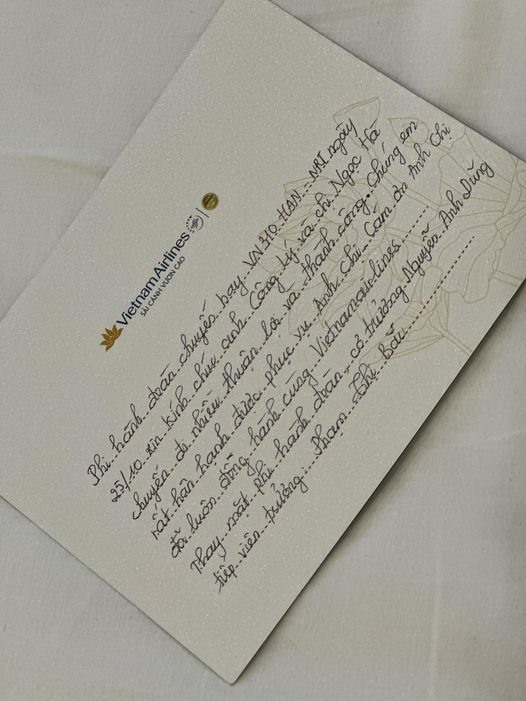 Vietnam Airlines
SẢI CÁNH VƯƠN CAO
Phi hành đoàn chuyến bay VN310 HAN - NRT ngày
25/10 xin kính chúc anh Công Lý và chị Ngọc Hà
chuyến đi nhiều thuận lợi và thành công. Chúng em
rất hân hạnh được phục vụ Anh Chị. Cảm ơn Anh Chị
đã luôn đồng hành cùng Vietnamairlines
Thay mặt phi hành đoàn, cơ trưởng Nguyễn Anh Dũng
tiếp viên trưởng: Phạm Thị Bắc